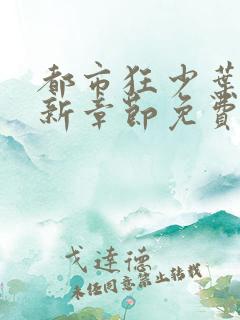 都市狂少葉
新章節免費
戈達德
未经同意禁止转载